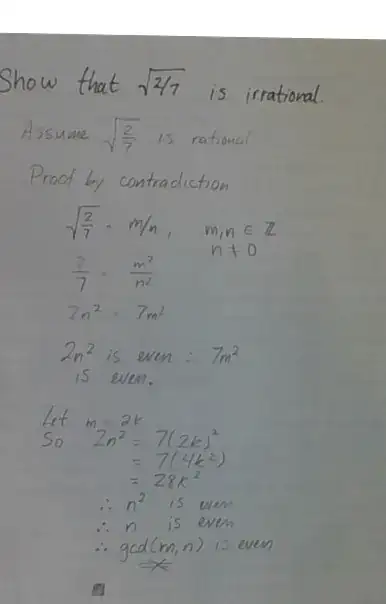 Show that √2/7 is irrational.
Assume √2/7 is rational
Proof by contradiction
√2/7 = m/n, m,n ∈ ℤ
n ≠ 0
2/7 = m²/n²
2n² = 7m²
2n² is even ∴ 7m²
is even.
Let m = 2k
So 2n² = 7(2k)²
= 7(4k²)
= 28k²
∴ n² is even
∴ n is even
∴ gcd(m,n) is even